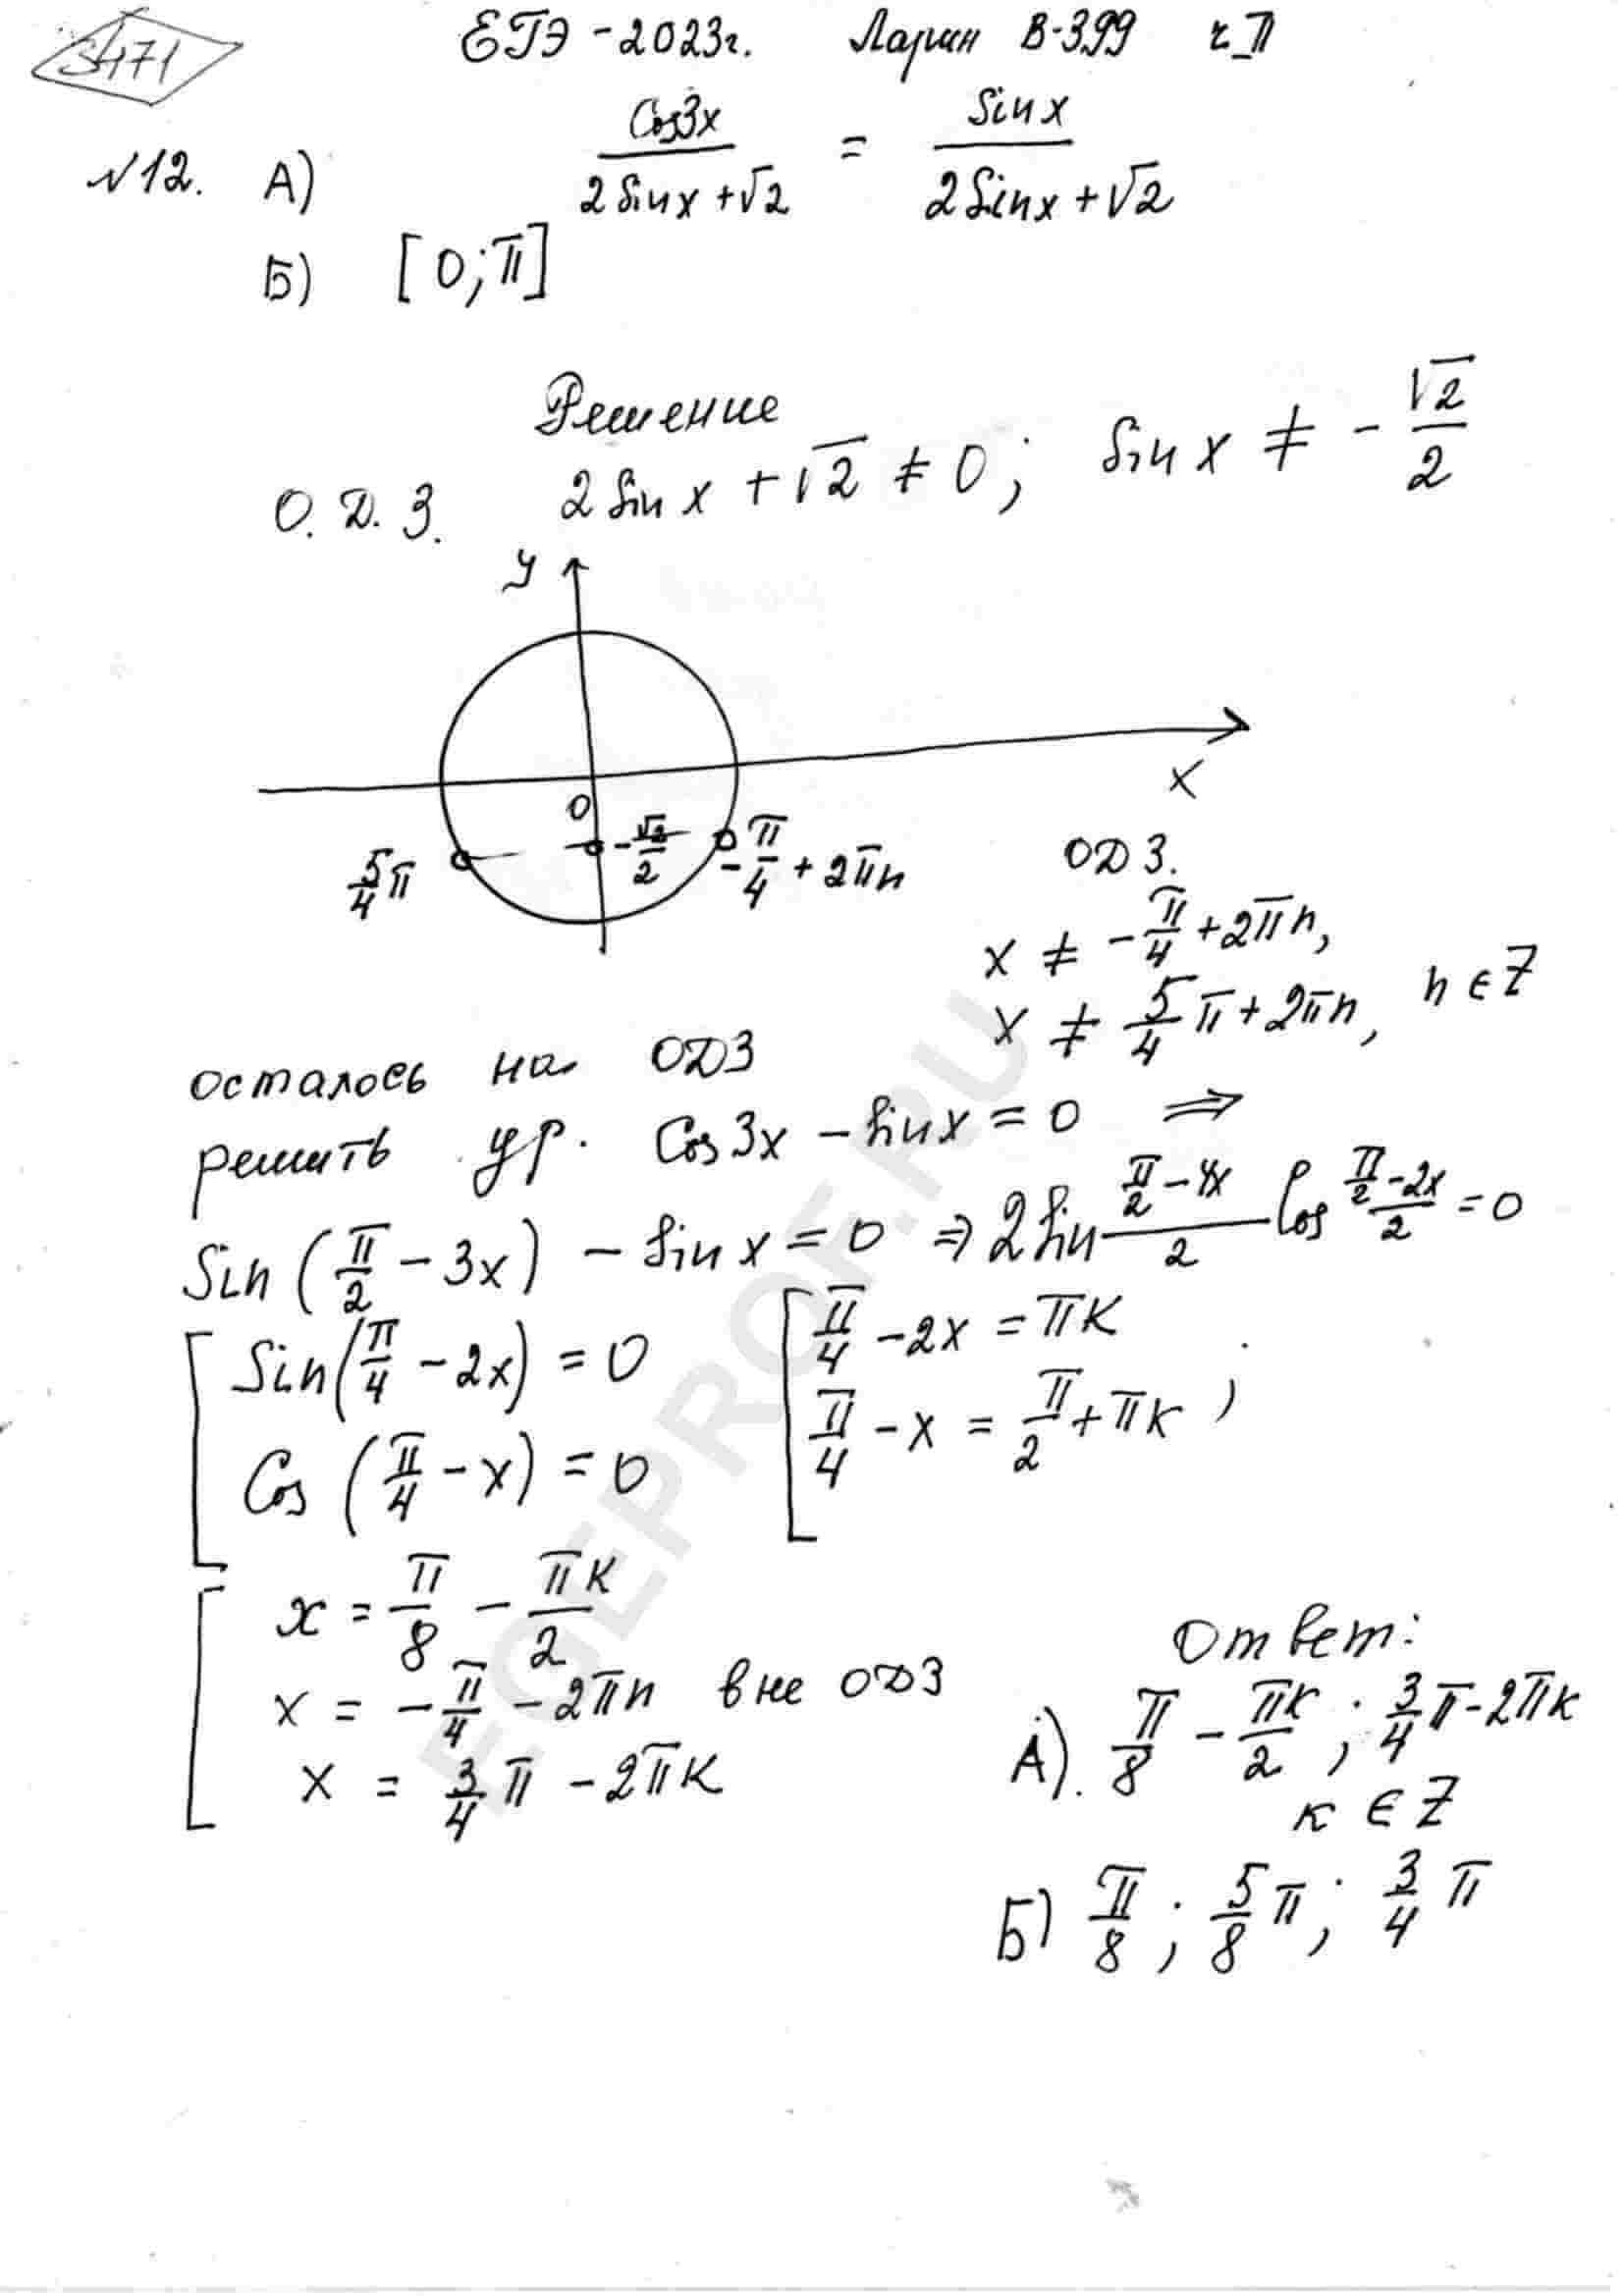 S471
ЕГЭ - 2023г. Ларин В-399 ч. II
№12. А) Cos3x / (2Sinx + √2) = Sinx / (2Sinx + √2)
Б) [0; π]
Решение
О.Д.З. 2Sinx + √2 ≠ 0; Sinx ≠ - √2/2
y
x
0
-√2/2
5/4 π
-π/4 + 2πn
ОДЗ.
x ≠ -π/4 + 2πn,
x ≠ 5/4 π + 2πn, n ∈ Z
осталось на ОДЗ
решить ур. Cos3x - Sinx = 0 ⇒
Sin(π/2 - 3x) - Sinx = 0 ⇒ 2Sin (π/2 - 4x)/2 Cos (π/2 - 2x)/2 = 0
[ Sin(π/4 - 2x) = 0 [ π/4 - 2x = πK
Cos(π/4 - x) = 0 π/4 - x = π/2 + πK ;
[ x = π/8 - πK/2
x = -π/4 - 2πn вне ОДЗ
x = 3/4 π - 2πK
Ответ:
А). π/8 - πK/2 ; 3/4 π - 2πK
K ∈ Z
Б) π/8 ; 5/8 π ; 3/4 π
EGEPROF.RU